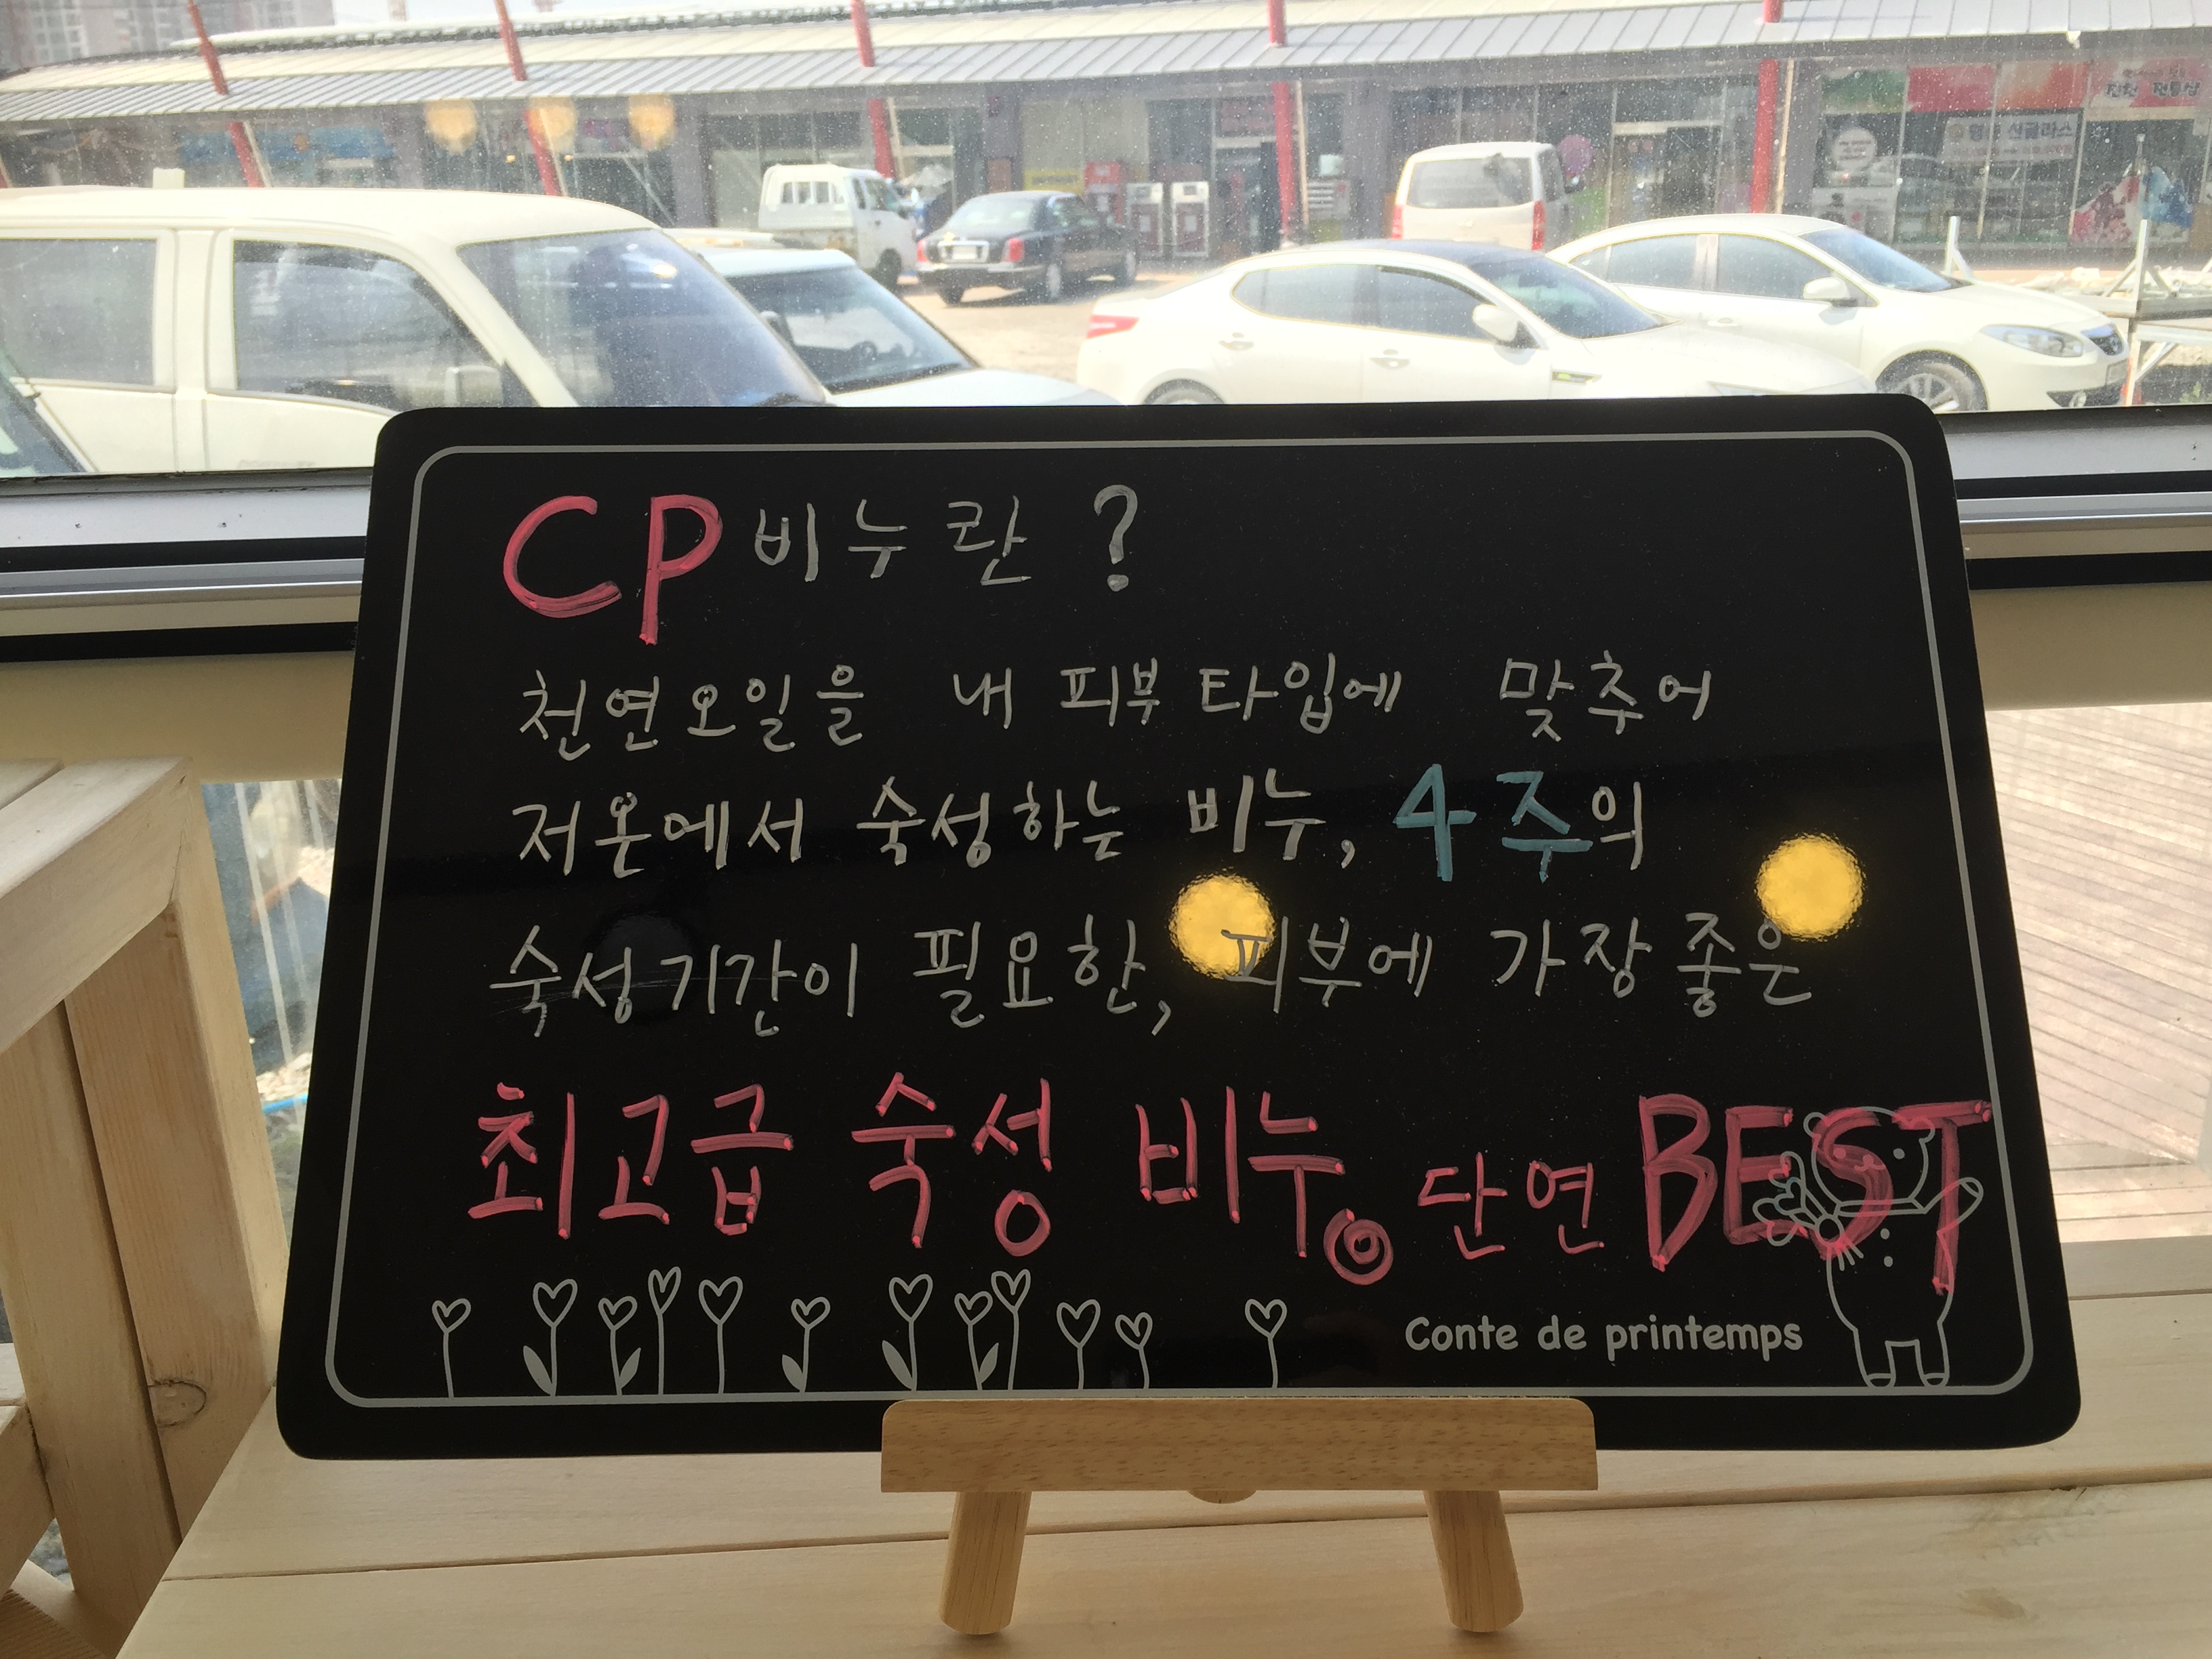 CP비누란?
천연오일을 내 피부 타입에 맞추어
저온에서 숙성하는 비누, 4주의
숙성기간이 필요한, 피부에 가장 좋은
최고급 숙성 비누. 단연 BEST
Conte de printemps